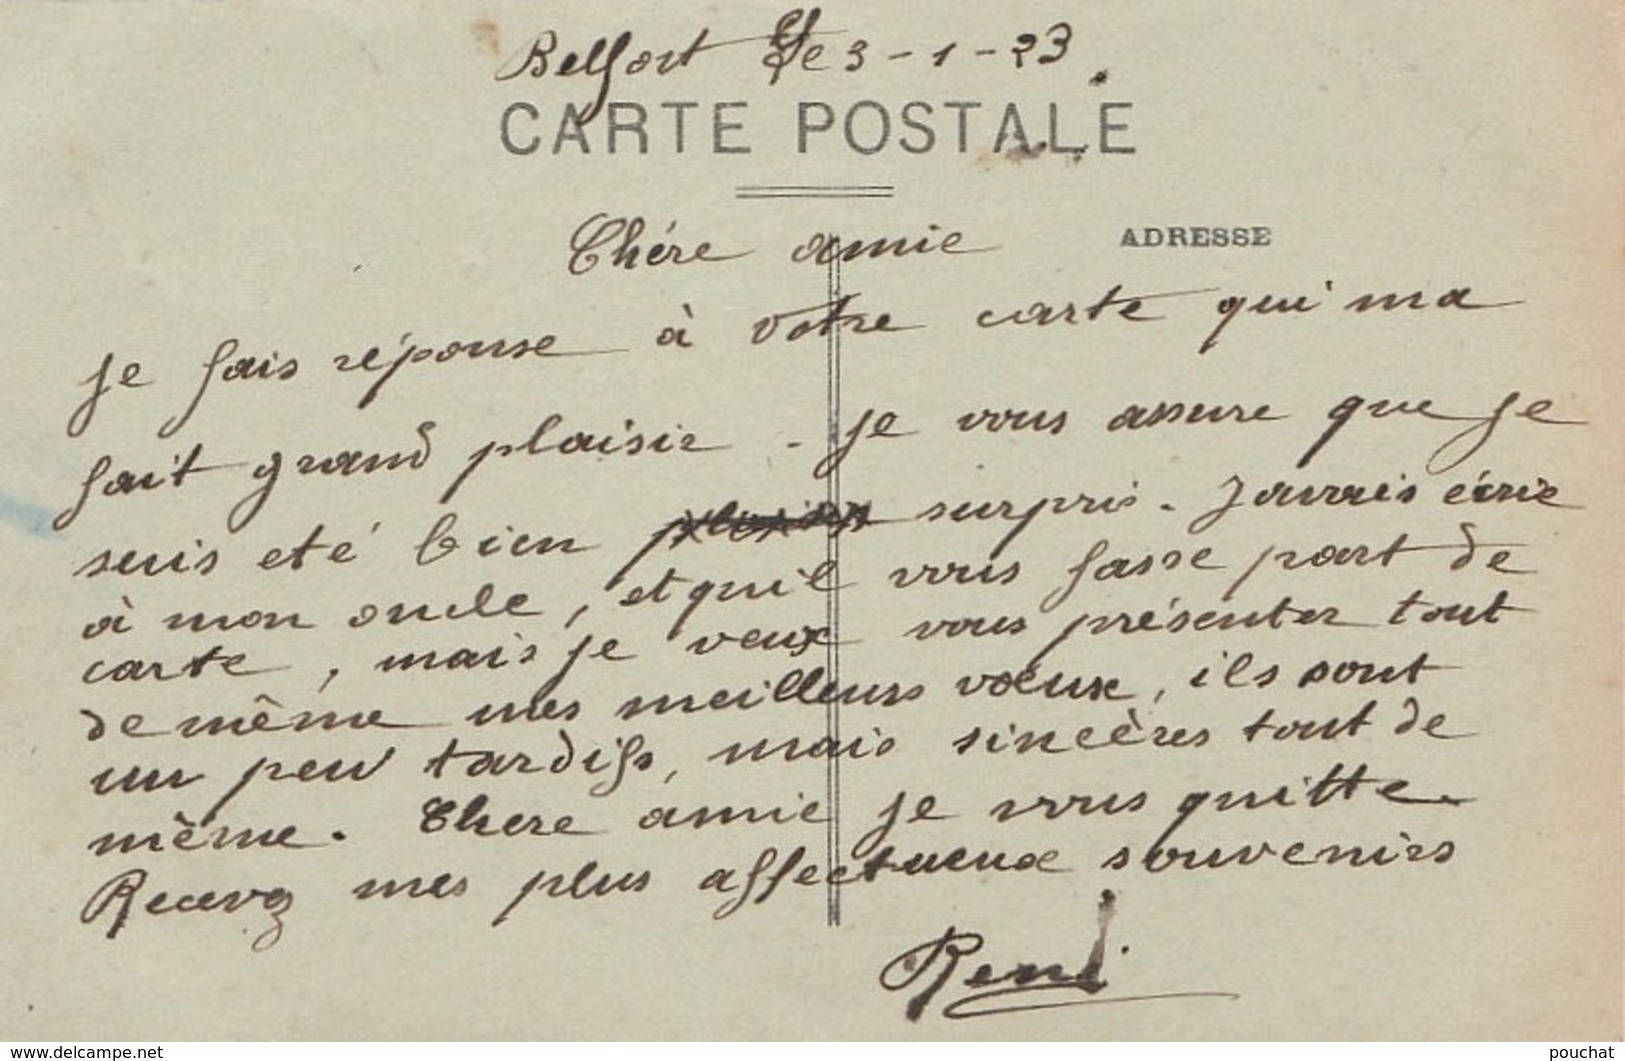 Belfort le 3-1-23.
CARTE POSTALE
ADRESSE
Chére amie
je fais réponse à votre carte qui ma
fait grand plaisir - je vous assure que je
suis eté bien surpris. Javrais écrie
à mon oncle, et quil vous fasse part de
carte, mais je veux vous présenter tout
de même mes meilleurs voeux, ils sont
un peu tardifs, mais sincères tout de
même. Chere amie je vous quitte.
Recevez mes plus affectueux souvenirs
René
www.delcampe.net
pouchat